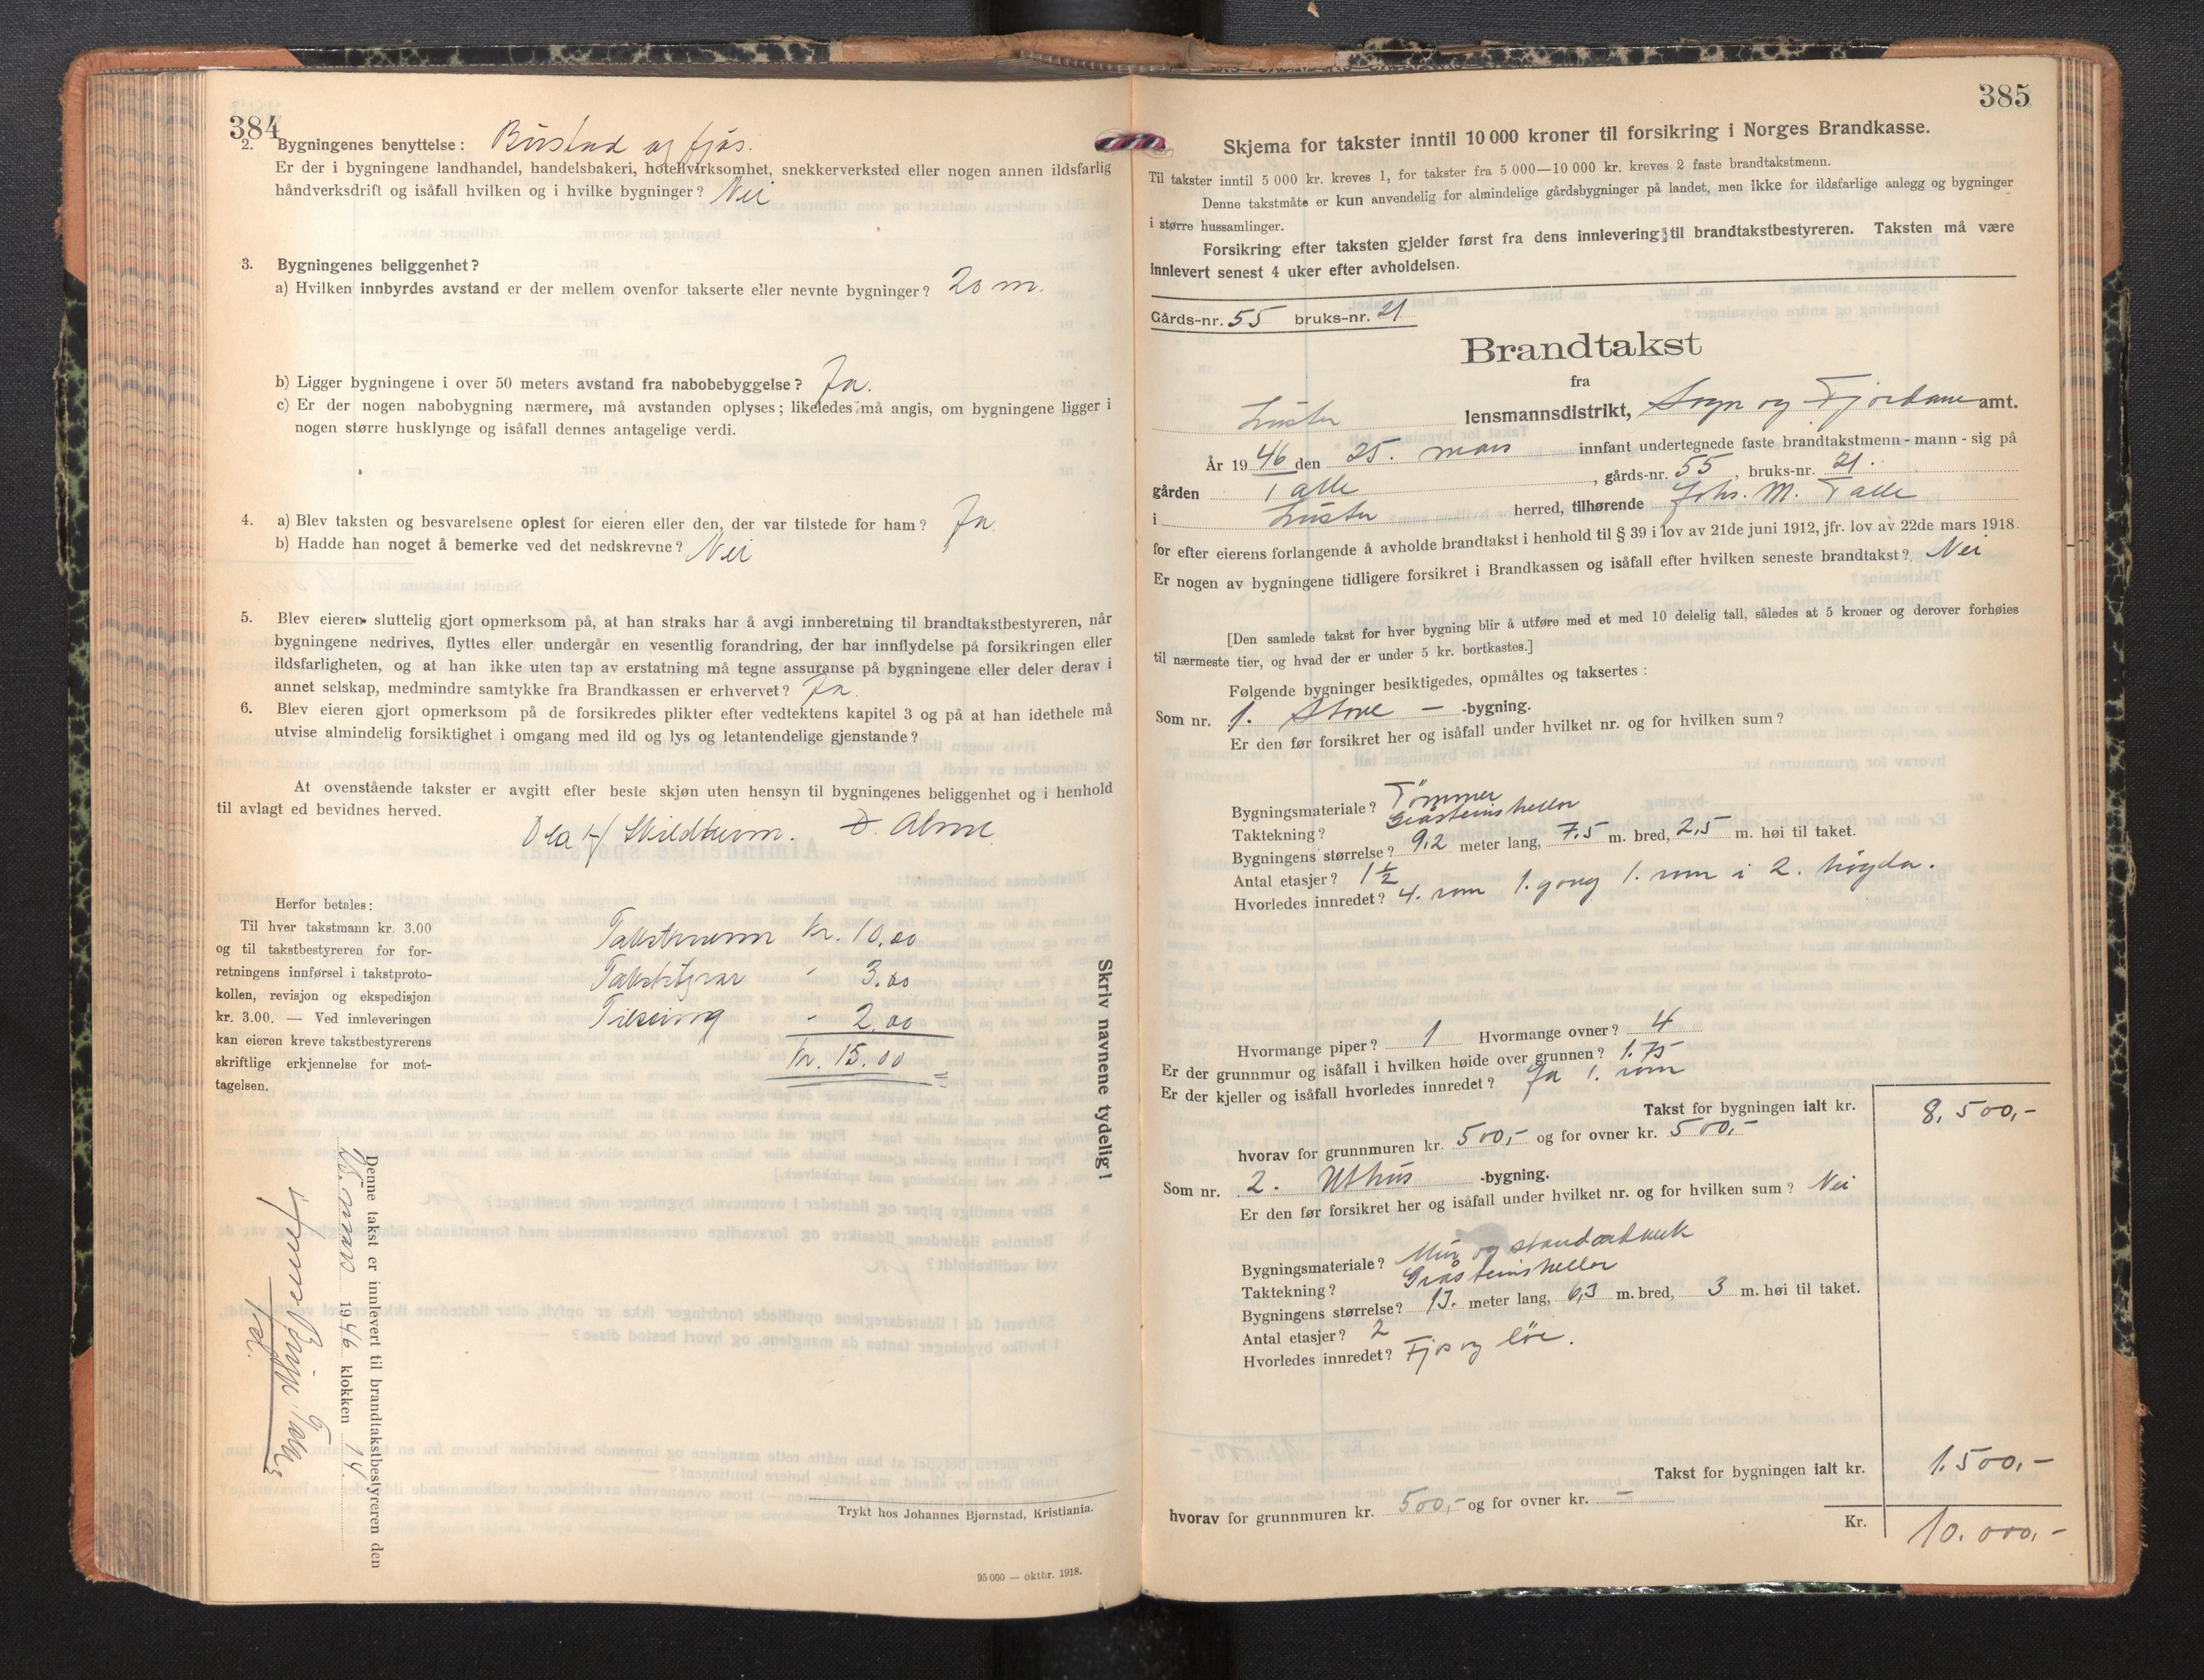 384
2. Bygningenes benyttelse: Bustad og fjøs.
Er der i bygningene landhandel, handelsbakeri, hotellvirksomhet, snekkerverksted eller nogen annen ildsfarlig
håndverksdrift og isåfall hvilken og i hvilke bygninger? Nei
3. Bygningenes beliggenhet?
a) Hvilken innbyrdes avstand er der mellem ovenfor takserte eller nevnte bygninger? 20 m.
b) Ligger bygningene i over 50 meters avstand fra nabobebyggelse? Ja.
c) Er der nogen nabobygning nærmere, må avstanden oplyses; likeledes må angis, om bygningene ligger i
nogen større husklynge og isåfall dennes antagelige verdi.
4. a) Blev taksten og besvarelsene oplest for eieren eller den, der var tilstede for ham? Ja
b) Hadde han noget å bemerke ved det nedskrevne? Nei
5. Blev eieren sluttelig gjort opmerksom på, at han straks har å avgi innberetning til brandtakstbestyreren, når
bygningene nedrives, flyttes eller undergår en vesentlig forandring, der har innflydelse på forsikringen eller
ildsfarligheten, og at han ikke uten tap av erstatning må tegne assuranse på bygningene eller deler derav i
annet selskap, medmindre samtykke fra Brandkassen er erhvervet? Ja.
6. Blev eieren gjort opmerksom på de forsikredes plikter efter vedtektens kapitel 3 og på at han idethele må
utvise almindelig forsiktighet i omgang med ild og lys og letantendelige gjenstande?
At ovenstående takster er avgitt efter beste skjøn uten hensyn til bygningenes beliggenhet og i henhold
til avlagt ed bevidnes herved.
Ola H Skildheim. D. Alme
Herfor betales:
Til hver takstmann kr. 3.00
og til takstbestyreren for for-
retningens innførsel i takstproto-
kollen, revisjon og ekspedisjon
kr. 3.00. — Ved innleveringen
kan eieren kreve takstbestyrerens
skriftlige erkjennelse for mot-
tagelsen.
Takstmenn kr. 10.00
Takststyrar - 3.00
- 2.00
kr. 15.00
Skriv navnene tydelig!
Denne takst er innlevert til brandtakstbestyreren den
mars 1946 klokken 14.
Trykt hos Johannes Bjørnstad, Kristiania.
95 000 — oktbr. 1918.
385
Skjema for takster inntil 10 000 kroner til forsikring i Norges Brandkasse.
Til takster inntil 5 000 kr. kreves 1, for takster fra 5 000—10 000 kr. kreves 2 faste brandtakstmenn.
Denne takstmåte er kun anvendelig for almindelige gårdsbygninger på landet, men ikke for ildsfarlige anlegg og bygninger
i større hussamlinger.
Forsikring efter taksten gjelder først fra dens innlevering til brandtakstbestyreren. Taksten må være
innlevert senest 4 uker efter avholdelsen.
Gårds-nr. 55 bruks-nr. 21
Brandtakst
fra
Luster lensmannsdistrikt, Sogn og Fjordane amt.
År 1946 den 25. mars innfant undertegnede faste brandtakstmenn - mann - sig på
gården Talle, gårds-nr. 55, bruks-nr. 21.
i Luster herred, tilhørende Johs. M. Talle
for efter eierens forlangende å avholde brandtakst i henhold til § 39 i lov av 21de juni 1912, jfr. lov av 22de mars 1918.
Er nogen av bygningene tidligere forsikret i Brandkassen og isåfall efter hvilken seneste brandtakst? Nei
[Den samlede takst for hver bygning blir å utføre med et med 10 delelig tall, således at 5 kroner og derover forhøies
til nærmeste tier, og hvad der er under 5 kr. bortkastes.]
Følgende bygninger besiktigedes, opmåltes og taksertes:
Som nr. 1. Stove -bygning.
Er den før forsikret her og isåfall under hvilket nr. og for hvilken sum?
Bygningsmateriale? Tømmer
Taktekning? Gråsteinsheller
Bygningens størrelse? 9,2 meter lang, 7,5 m. bred, 2,5 m. høi til taket.
Antal etasjer? 1 1/2
Hvorledes innredet? 4. rom 1. gong 1. rom i 2. høgda.
Hvormange piper? 1 Hvormange ovner? 4
Er der grunnmur og isåfall i hvilken høide over grunnen? 1.75
Er der kjeller og isåfall hvorledes innredet? Ja 1. rom
Takst for bygningen ialt kr. 8.500,-
hvorav for grunnmuren kr. 500,- og for ovner kr. 500,-
Som nr. 2. Uthus -bygning.
Er den før forsikret her og isåfall under hvilket nr. og for hvilken sum? Nei
Bygningsmateriale? Mur og standarbank
Taktekning? Gråsteinsheller
Bygningens størrelse? 13. meter lang, 6,3 m. bred, 3 m. høi til taket.
Antal etasjer? 2
Hvorledes innredet? Fjøs og løe.
Takst for bygningen ialt kr. 1.500,-
hvorav for grunnmuren kr. 500,- og for ovner kr. -
Kr. 10.000,-